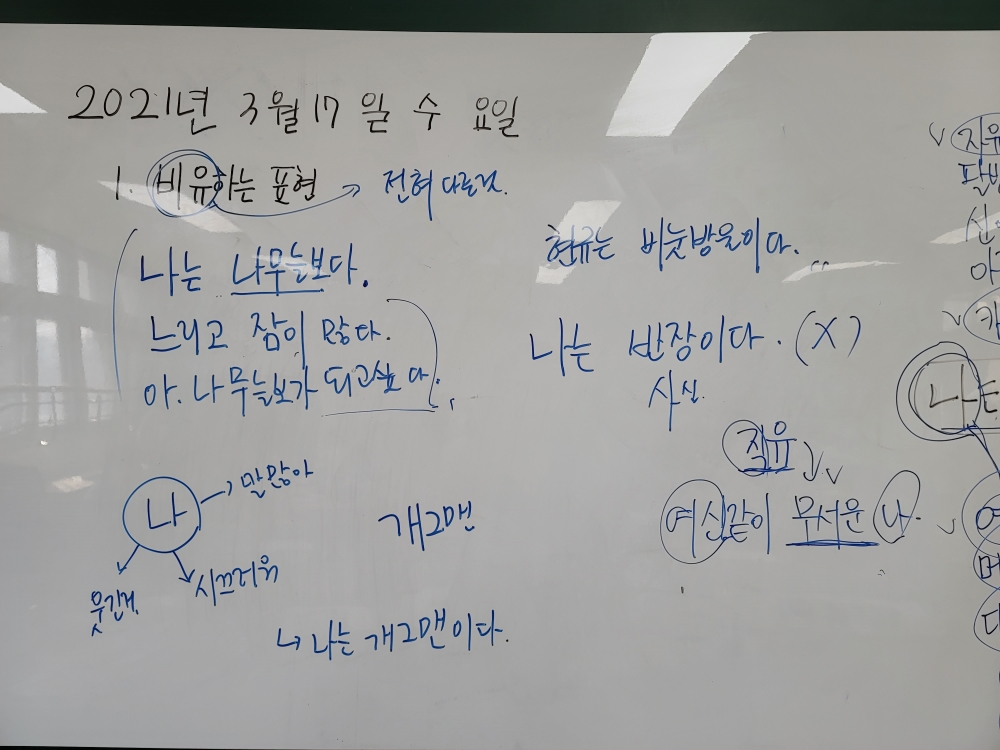 2021년 3월 17일 수요일
1. 비유하는 표현 → 전혀 다른것.
나는 나무늘보다.
느리고 잠이 많다.
아. 나무늘보가 되고싶다.
현규는 비눗방울이다.
나는 반장이다. (X)
사실.
직유
여신같이 무서운 나.
나
말많아
웃긴게.
시끄러워
개그맨
↳ 나는 개그맨이다.